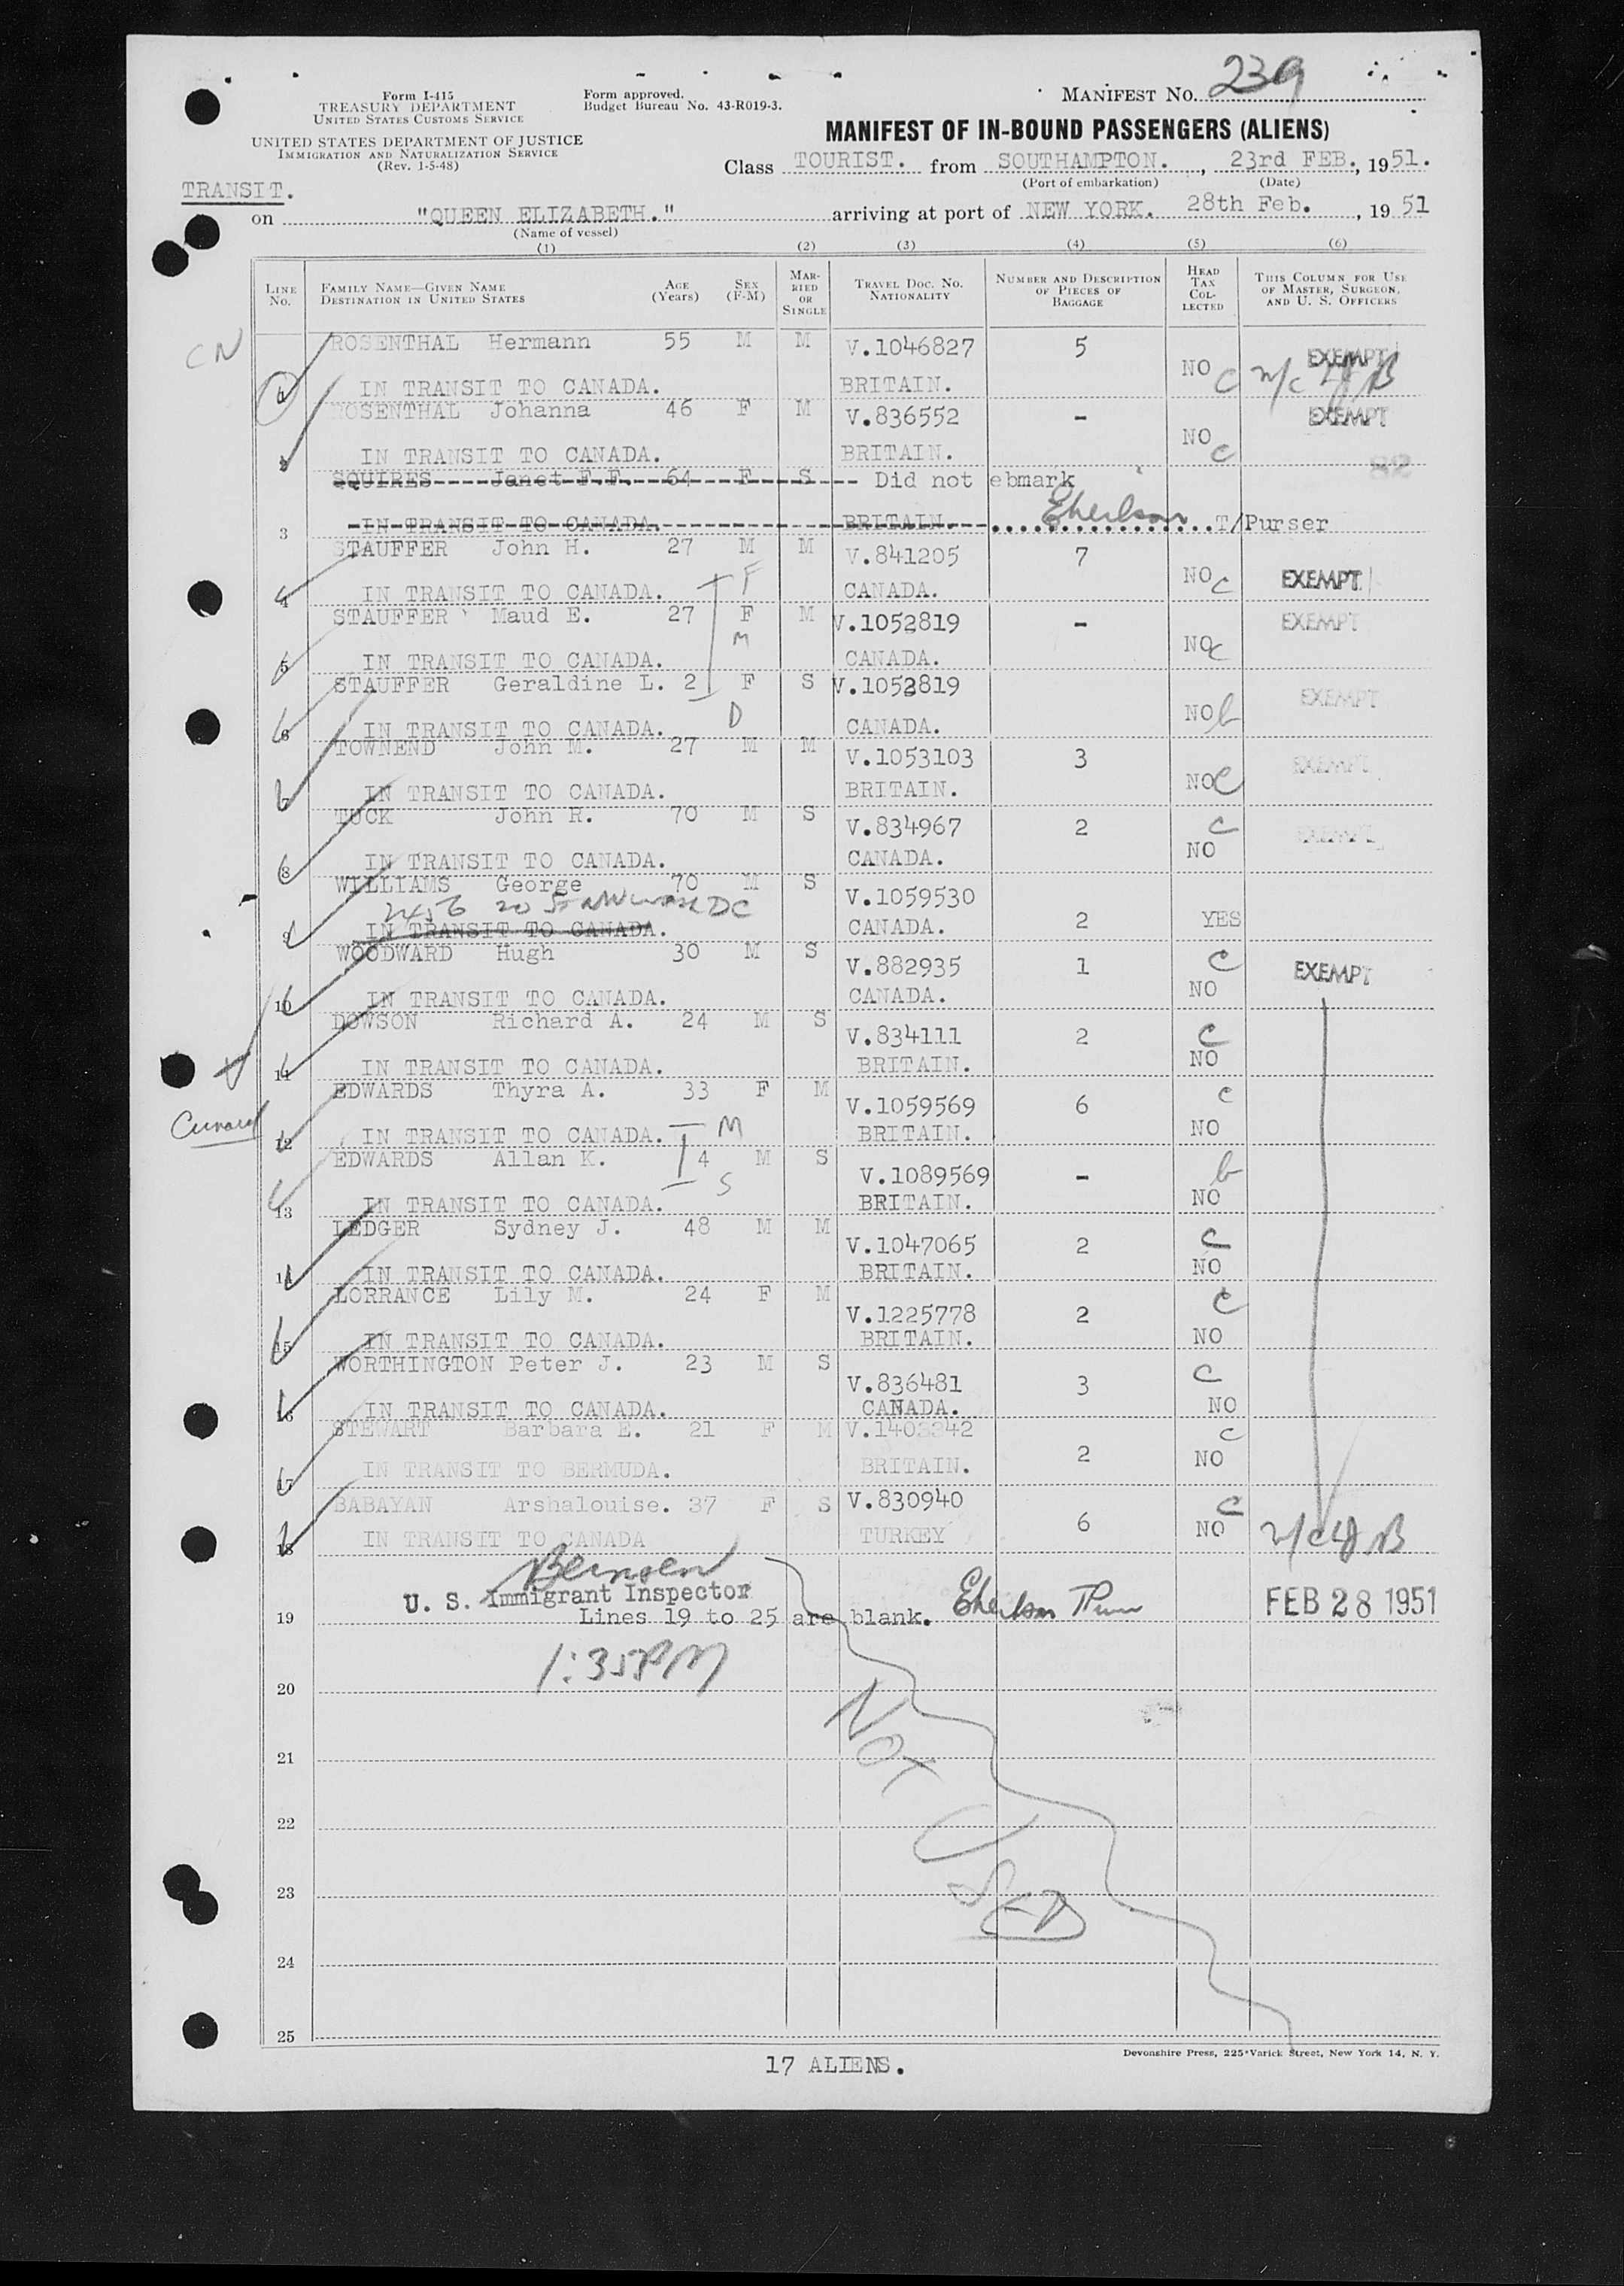 Form I-415
TREASURY DEPARTMENT
UNITED STATES CUSTOMS SERVICE
UNITED STATES DEPARTMENT OF JUSTICE
IMMIGRATION AND NATURALIZATION SERVICE
(Rev. 1-5-48)
Form approved.
Budget Bureau No. 43-R019-3.
MANIFEST NO. 239
MANIFEST OF IN-BOUND PASSENGERS (ALIENS)
Class TOURIST. from SOUTHAMPTON., 23rd FEB., 1951.
(Port of embarkation) (Date)
TRANSIT.
on "QUEEN ELIZABETH." arriving at port of NEW YORK. 28th Feb., 1951
(Name of vessel)
(1) (2) (3) (4) (5) (6)
LINE No. FAMILY NAME—GIVEN NAME DESTINATION IN UNITED STATES AGE (Years) SEX (F-M) MARRIED OR SINGLE TRAVEL DOC. NO. NATIONALITY NUMBER AND DESCRIPTION OF PIECES OF BAGGAGE HEAD TAX COLLECTED THIS COLUMN FOR USE OF MASTER, SURGEON, AND U. S. OFFICERS
CN
ROSENTHAL Hermann 55 M M V.1046827 5 EXEMPT
1 IN TRANSIT TO CANADA. BRITAIN. NO C
ROSENTHAL Johanna 46 F M V.836552 - EXEMPT
2 IN TRANSIT TO CANADA. BRITAIN. NO C
82
SQUIRES Janet F.F. 64 F S -- Did not ebmark
3 IN TRANSIT TO CANADA. BRITAIN. T/Purser
STAUFFER John H. 27 M M V.841205 7
4 IN TRANSIT TO CANADA. F CANADA. NO C EXEMPT
STAUFFER Maud E. 27 F M V.1052819 - EXEMPT
5 IN TRANSIT TO CANADA. M CANADA. NO C
STAUFFER Geraldine L. 2 F S V.1052819 EXEMPT
6 IN TRANSIT TO CANADA. D CANADA. NO b
TOWNEND John M. 27 M M V.1053103 3 EXEMPT
7 IN TRANSIT TO CANADA. BRITAIN. NO C
TUCK John R. 70 M S V.834967 2 C EXEMPT
8 IN TRANSIT TO CANADA. CANADA. NO
WILLIAMS George 70 M S V.1059530
2456 20 St NW Wash DC
9 IN TRANSIT TO CANADA. CANADA. 2 YES
WOODWARD Hugh 30 M S V.882935 1 C EXEMPT
10 IN TRANSIT TO CANADA. CANADA. NO
DOWSON Richard A. 24 M S V.834111 2 C
11 IN TRANSIT TO CANADA. BRITAIN. NO
EDWARDS Thyra A. 33 F M V.1059569 6 C
Cunard
12 IN TRANSIT TO CANADA. M BRITAIN. NO
EDWARDS Allan K. 4 M S V.1089569 - b
13 IN TRANSIT TO CANADA. S BRITAIN. NO
LEDGER Sydney J. 48 M M V.1047065 2 C
14 IN TRANSIT TO CANADA. BRITAIN. NO
LORRANCE Lily M. 24 F M V.1225778 2 C
15 IN TRANSIT TO CANADA. BRITAIN. NO
WORTHINGTON Peter J. 23 M S V.836481 3 C
16 IN TRANSIT TO CANADA. CANADA. NO
STEWART Barbara E. 21 F M V.1403342 2 C
17 IN TRANSIT TO BERMUDA. BRITAIN. NO
BABAYAN Arshalouise. 37 F S V.830940 6 C
18 IN TRANSIT TO CANADA TURKEY NO
U. S. Immigrant Inspector
19 Lines 19 to 25 are blank. FEB 28 1951
1:35PM
20
NOT
21
22
USED
23
24
25
Devonshire Press, 225 Varick Street, New York 14, N. Y.
17 ALIENS.